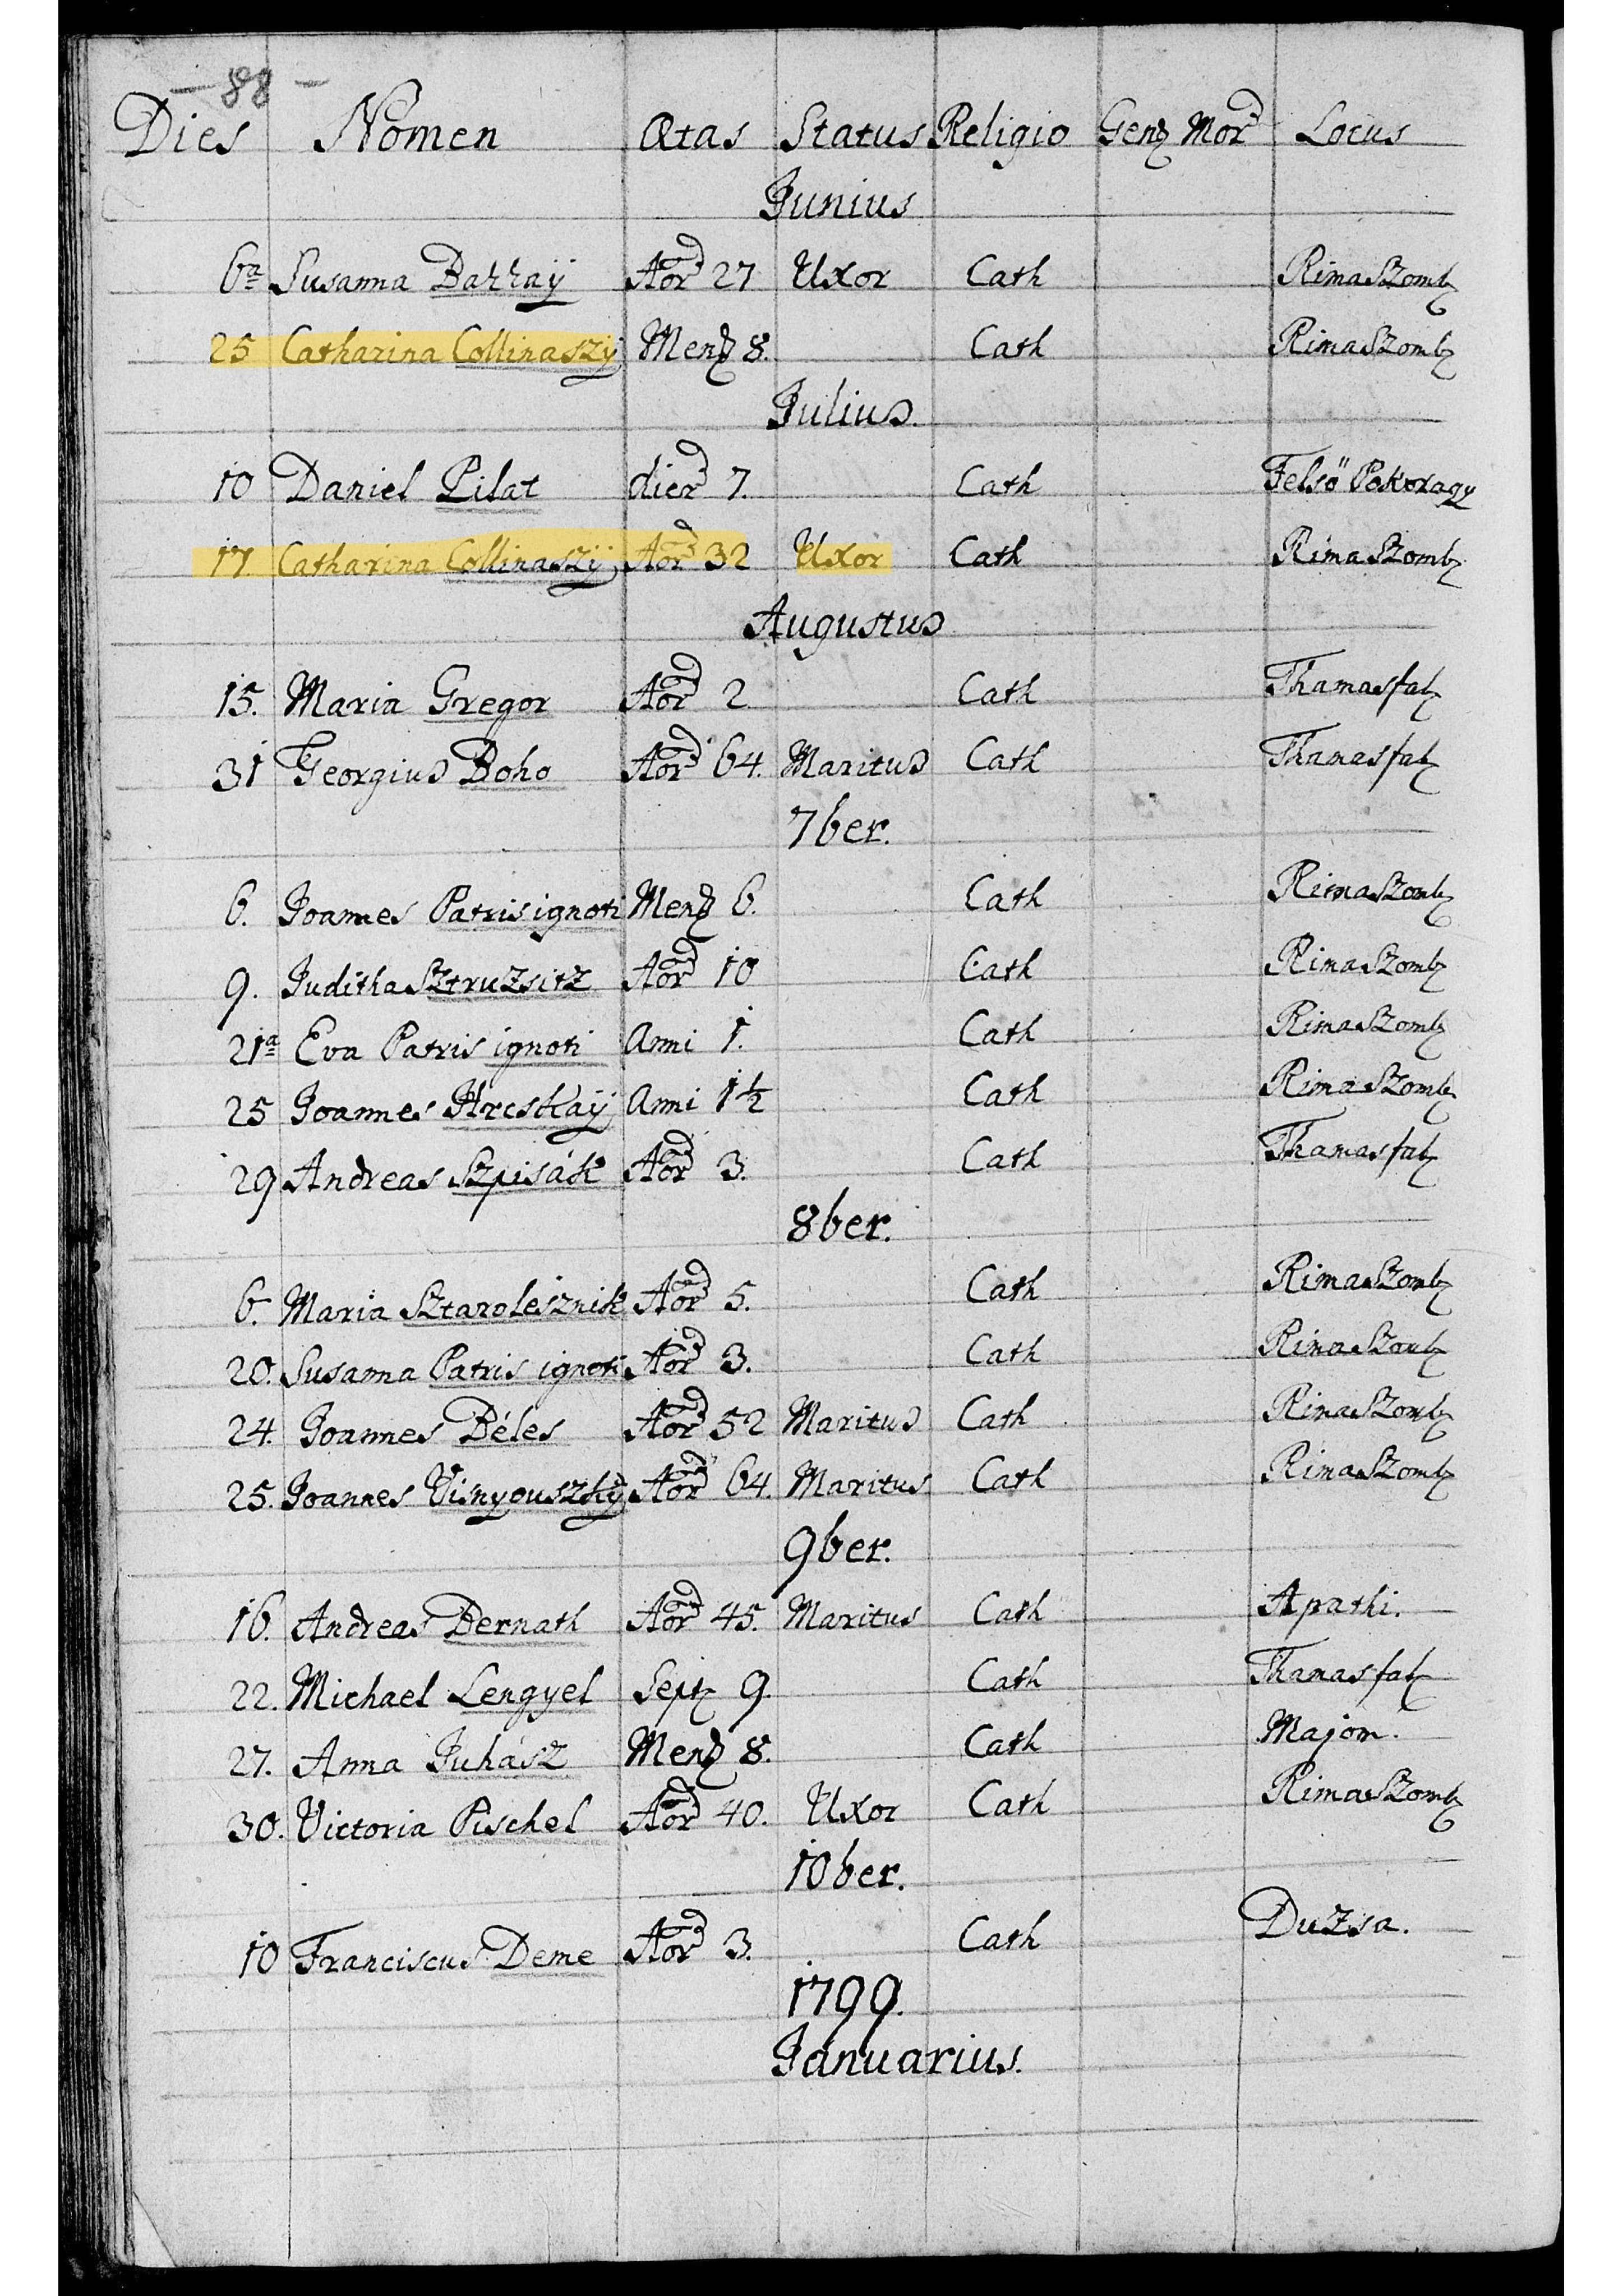 — 88 —
Dies Nomen Ætas Status Religio Genꝫ Mor͠d Locus
Junius
6ª Susanna Bazzaÿ Aor͠d 27 Uxor Cath RimaSzombꝫ
25 Catharina Collinaszÿ Menꝫ 8. Cath RimaSzombꝫ
Julius.
10 Daniel Pilat dier͠d 7. Cath Felsö Pokoragy
17. Catharina Collinaszÿ Aor͠d 32 Uxor Cath RimaSzombꝫ
Augustus
15. Maria Gregor Aor͠d 2 Cath Thamasfalꝫ
31 Georgius Boho Aor͠d 64. Maritus Cath Thamasfalꝫ
7ber.
6. Joannes Patris ignoti Menꝫ 6. Cath RimaSzombꝫ
9. Juditha Sztruzsitz Aor͠d 10 Cath RimaSzombꝫ
21ª Eva Patris ignoti Anni 1. Cath RimaSzombꝫ
25 Joannes Hreskaÿ Anni 1½ Cath RimaSzombꝫ
29 Andreas Szpisák Aor͠d 3. Cath Thamasfalꝫ
8ber.
6. Maria Sztarolesznik Aor͠d 5. Cath RimaSzombꝫ
20. Susanna Patris ignoti Aor͠d 3. Cath RimaSzombꝫ
24. Joannes Béles Aor͠d 52 Maritus Cath RimaSzombꝫ
25. Joannes Visnyouszkÿ Aor͠d 64. Maritus Cath RimaSzombꝫ
9ber.
16. Andreas Bernath Aor͠d 45. Maritus Cath Apathi.
22. Michael Lengyel Septꝫ 9. Cath Thamasfalꝫ
27. Anna Juhász Menꝫ 8. Cath Majom.
30. Victoria Pischel Aor͠d 40. Uxor Cath RimaSzombꝫ
10ber.
10 Franciscus Deme Aor͠d 3. Cath Duzsa.
1799.
Januarius.